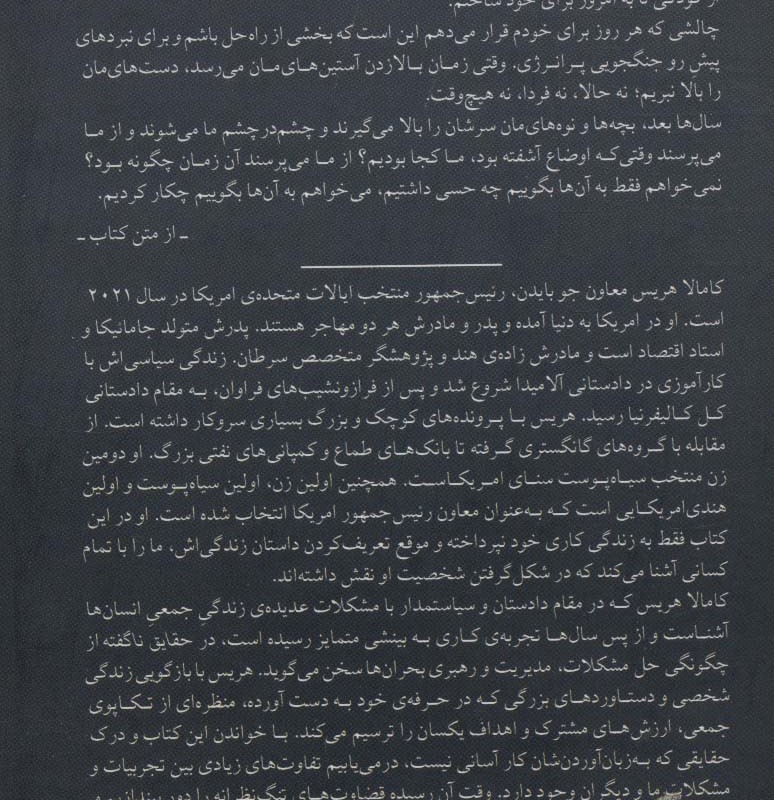 از کودکی تا به امروز برای خود ساختم.
چالشی که هر روز برای خودم قرار می‌دهم این است که بخشی از راه‌حل باشم و برای نبردهای
پیشِ رو جنگجویی پرانرژی. وقتی زمان بالازدن آستین‌های‌مان می‌رسد، دست‌های‌مان
را بالا نبریم؛ نه حالا، نه فردا، نه هیچ‌وقت.
سال‌ها بعد، بچه‌ها و نوه‌های‌مان سرشان را بالا می‌گیرند و چشم‌درچشم ما می‌شوند و از ما
می‌پرسند وقتی‌که اوضاع آشفته بود، ما کجا بودیم؟ از ما می‌پرسند آن زمان چگونه بود؟
نمی‌خواهم فقط به آن‌ها بگوییم چه حسی داشتیم، می‌خواهم به آن‌ها بگوییم چکار کردیم.
ـ از متن کتاب ـ
کامالا هریس معاون جو بایدن، رئیس‌جمهور منتخب ایالات متحده‌ی امریکا در سال ۲۰۲۱
است. او در امریکا به دنیا آمده و پدر و مادرش هر دو مهاجر هستند. پدرش متولد جامائیکا و
استاد اقتصاد است و مادرش زاده‌ی هند و پژوهشگر متخصص سرطان. زندگی سیاسی‌اش با
کارآموزی در دادستانی آلامیدا شروع شد و پس از فرازونشیب‌های فراوان، به مقام دادستانی
کل کالیفرنیا رسید. هریس با پرونده‌های کوچک و بزرگ بسیاری سروکار داشته است. از
مقابله با گروه‌های گانگستری گرفته تا بانک‌های طماع و کمپانی‌های نفتی بزرگ. او دومین
زن منتخب سیاه‌پوست سنای امریکاست. همچنین اولین زن، اولین سیاه‌پوست و اولین
هندی‌امریکایی است که به‌عنوان معاون رئیس‌جمهور امریکا انتخاب شده است. او در این
کتاب فقط به زندگی کاری خود نپرداخته و موقع تعریف‌کردن داستان زندگی‌اش، ما را با تمام
کسانی آشنا می‌کند که در شکل‌گرفتن شخصیت او نقش داشته‌اند.
کامالا هریس که در مقام دادستان و سیاستمدار با مشکلات عدیده‌ی زندگی جمعی انسان‌ها
آشناست و از پس سال‌ها تجربه‌ی کاری به بینشی متمایز رسیده است، در حقایق ناگفته از
چگونگی حل مشکلات، مدیریت و رهبری بحران‌ها سخن می‌گوید. هریس با بازگویی زندگی
شخصی و دستاوردهای بزرگی که در حرفه‌ی خود به دست آورده، منظره‌ای از تکاپوی
جمعی، ارزش‌های مشترک و اهداف یکسان را ترسیم می‌کند. با خواندن این کتاب و درک
حقایقی که به‌زبان‌آوردن‌شان کار آسانی نیست، درمی‌یابیم تفاوت‌های زیادی بین تجربیات و
مشکلات ما و دیگران وجود دارد. وقت آن رسیده قضاوت‌های تنگ‌نظرانه را دور بیندازیم و